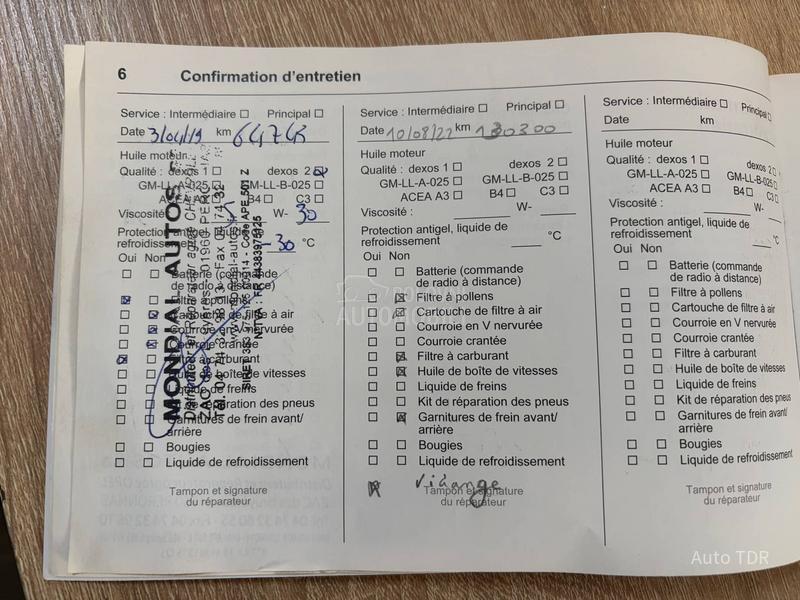 6 Confirmation d'entretien
Service : Intermédiaire Principal
Date 3/04/19 km 64743
Huile moteur
Qualité : dexos 1 dexos 2
GM-LL-A-025 GM-LL-B-025
ACEA A3 B4 C3
Viscosité W- 30
Protection antigel, liquide
refroidissement -30 °C
Oui Non
Batterie (commande
de radio à distance)
Filtre à pollens
Cartouche de filtre à air
Courroie en V nervurée
Courroie crantée
Filtre à carburant
Huile de boîte de vitesses
Liquide de freins
Kit de réparation des pneus
Garnitures de frein avant/
arrière
Bougies
Liquide de refroidissement
Tampon et signature
du réparateur
MONDIAL AUTOS
Service : Intermédiaire Principal
Date 10/08/22 km 130300
Huile moteur
Qualité : dexos 1 dexos 2
GM-LL-A-025 GM-LL-B-025
ACEA A3 B4 C3
Viscosité : W-
Protection antigel, liquide de
refroidissement °C
Oui Non
Batterie (commande
de radio à distance)
Filtre à pollens
Cartouche de filtre à air
Courroie en V nervurée
Courroie crantée
Filtre à carburant
Huile de boîte de vitesses
Liquide de freins
Kit de réparation des pneus
Garnitures de frein avant/
arrière
Bougies
Liquide de refroidissement
Vidange
Tampon et signature
du réparateur
Service : Intermédiaire Principal
Date km
Huile moteur
Qualité : dexos 1 dexos 2
GM-LL-A-025 GM-LL-B-025
ACEA A3 B4 C3
Viscosité : W-
Protection antigel, liquide de
refroidissement °C
Oui Non
Batterie (commande
de radio à distance)
Filtre à pollens
Cartouche de filtre à air
Courroie en V nervurée
Courroie crantée
Filtre à carburant
Huile de boîte de vitesses
Liquide de freins
Kit de réparation des pneus
Garnitures de frein avant/
arrière
Bougies
Liquide de refroidissement
Tampon et signature
du réparateur
Auto TDR